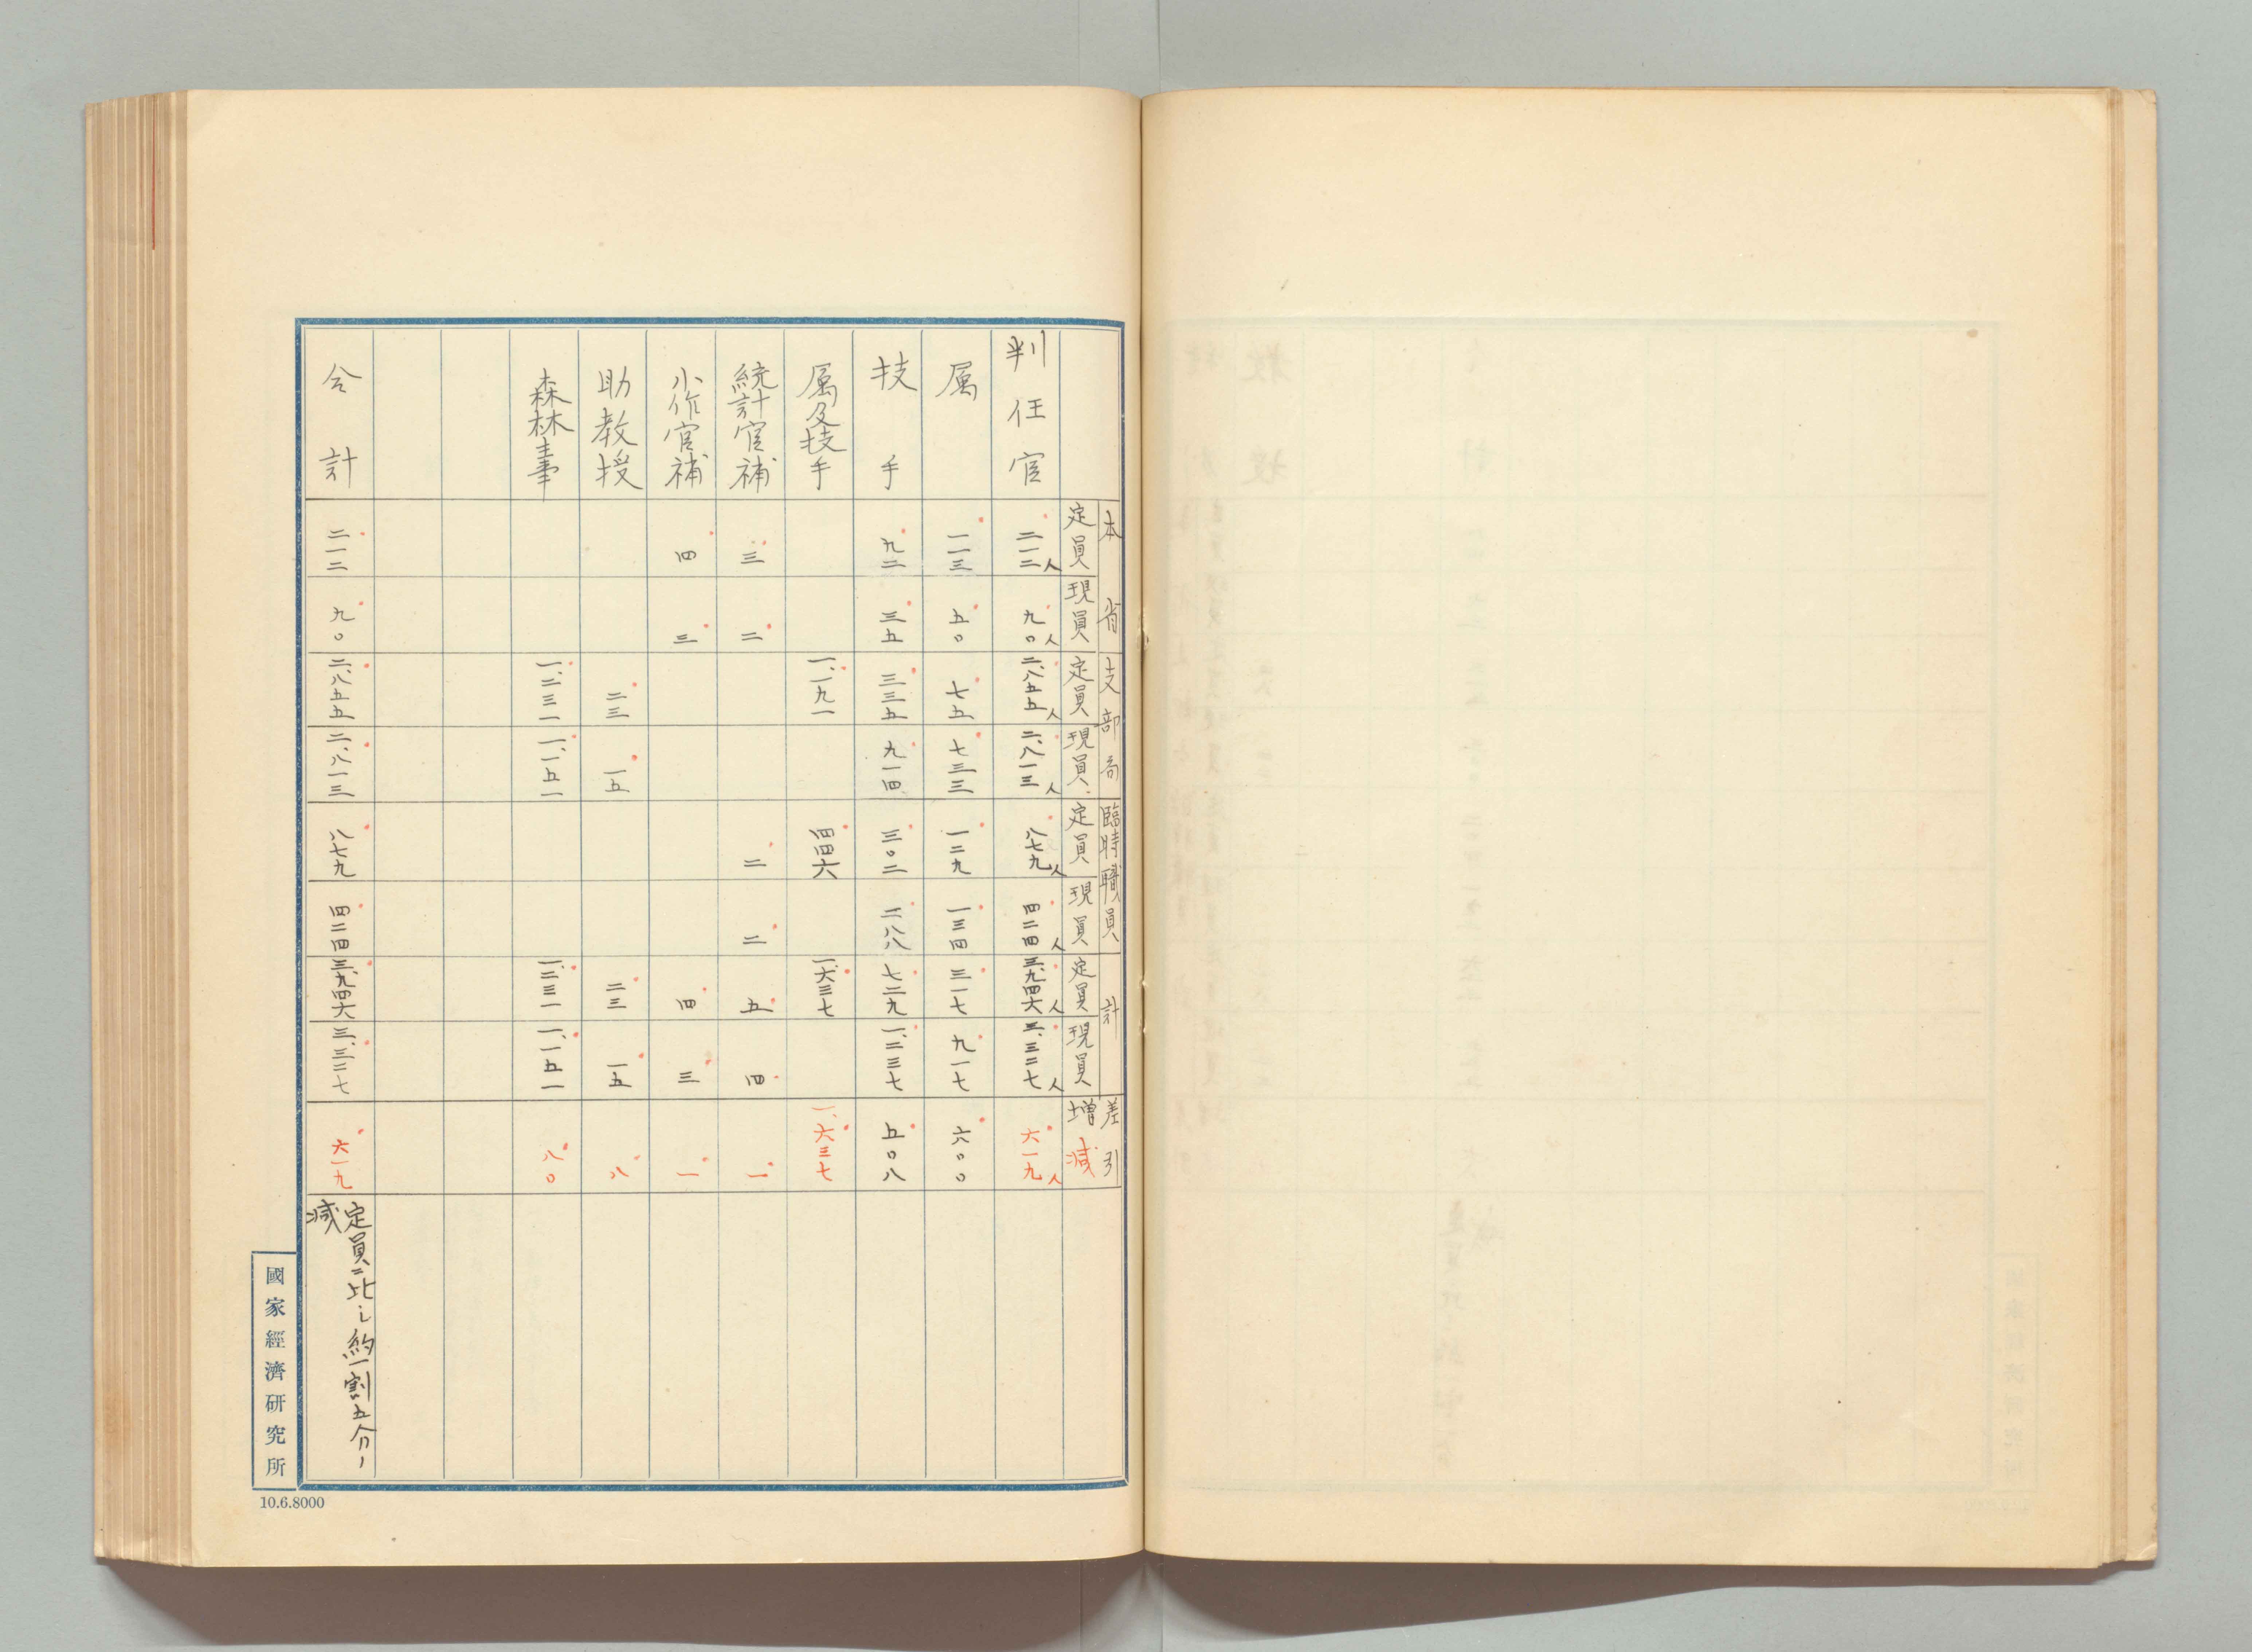 本省 支部局 臨時職員 計 差引
定員 現員 定員 現員 定員 現員 定員 現員 増減
判任官 二一二人 九〇人 二、八五五人 二、八一三人 八七九人 四二四人 三、九四六人 三、三二七人 六一九人
属 一一三 五〇 七五 七三三 一二九 一三四 三一七 九一七 六〇〇
技手 九二 三五 三三五 九一四 三〇二 二八八 七二九 一、二三七 五〇八
属及技手 一、一九一 四四六 一、六三七 一、六三七
統計官補 三 二 二 二 五 四 一
小作官補 四 三 四 三 一
助教授 二三 一五 二三 一五 八
森林主事 一、二三一 一、一五一 一、二三一 一、一五一 八〇
合計 二一二 九〇 二、八五五 二、八一三 八七九 四二四 三、九四六 三、三二七 六一九 定員ニ比シ約一割五分ノ
減
國家經濟研究所
10.6.8000